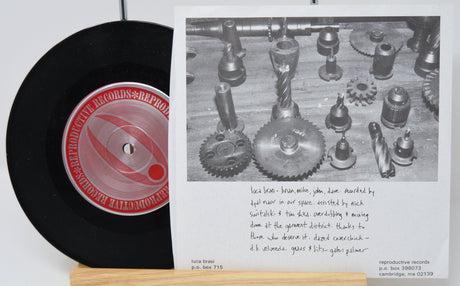 REPRODUCTIVE RECORDS*REPRODUCTIVE RECORDS
luca brasi - brian, mike, john, dave. recorded by
our space. assisted by nick
& tim shea. overdubbing & mixing
done at the garment district. thanks to
those who deserve it. david
gears & bits- gabe palmer
luca brasi
p.o. box 715
reproductive records
p.o. box 398073
cambridge, ma 02139